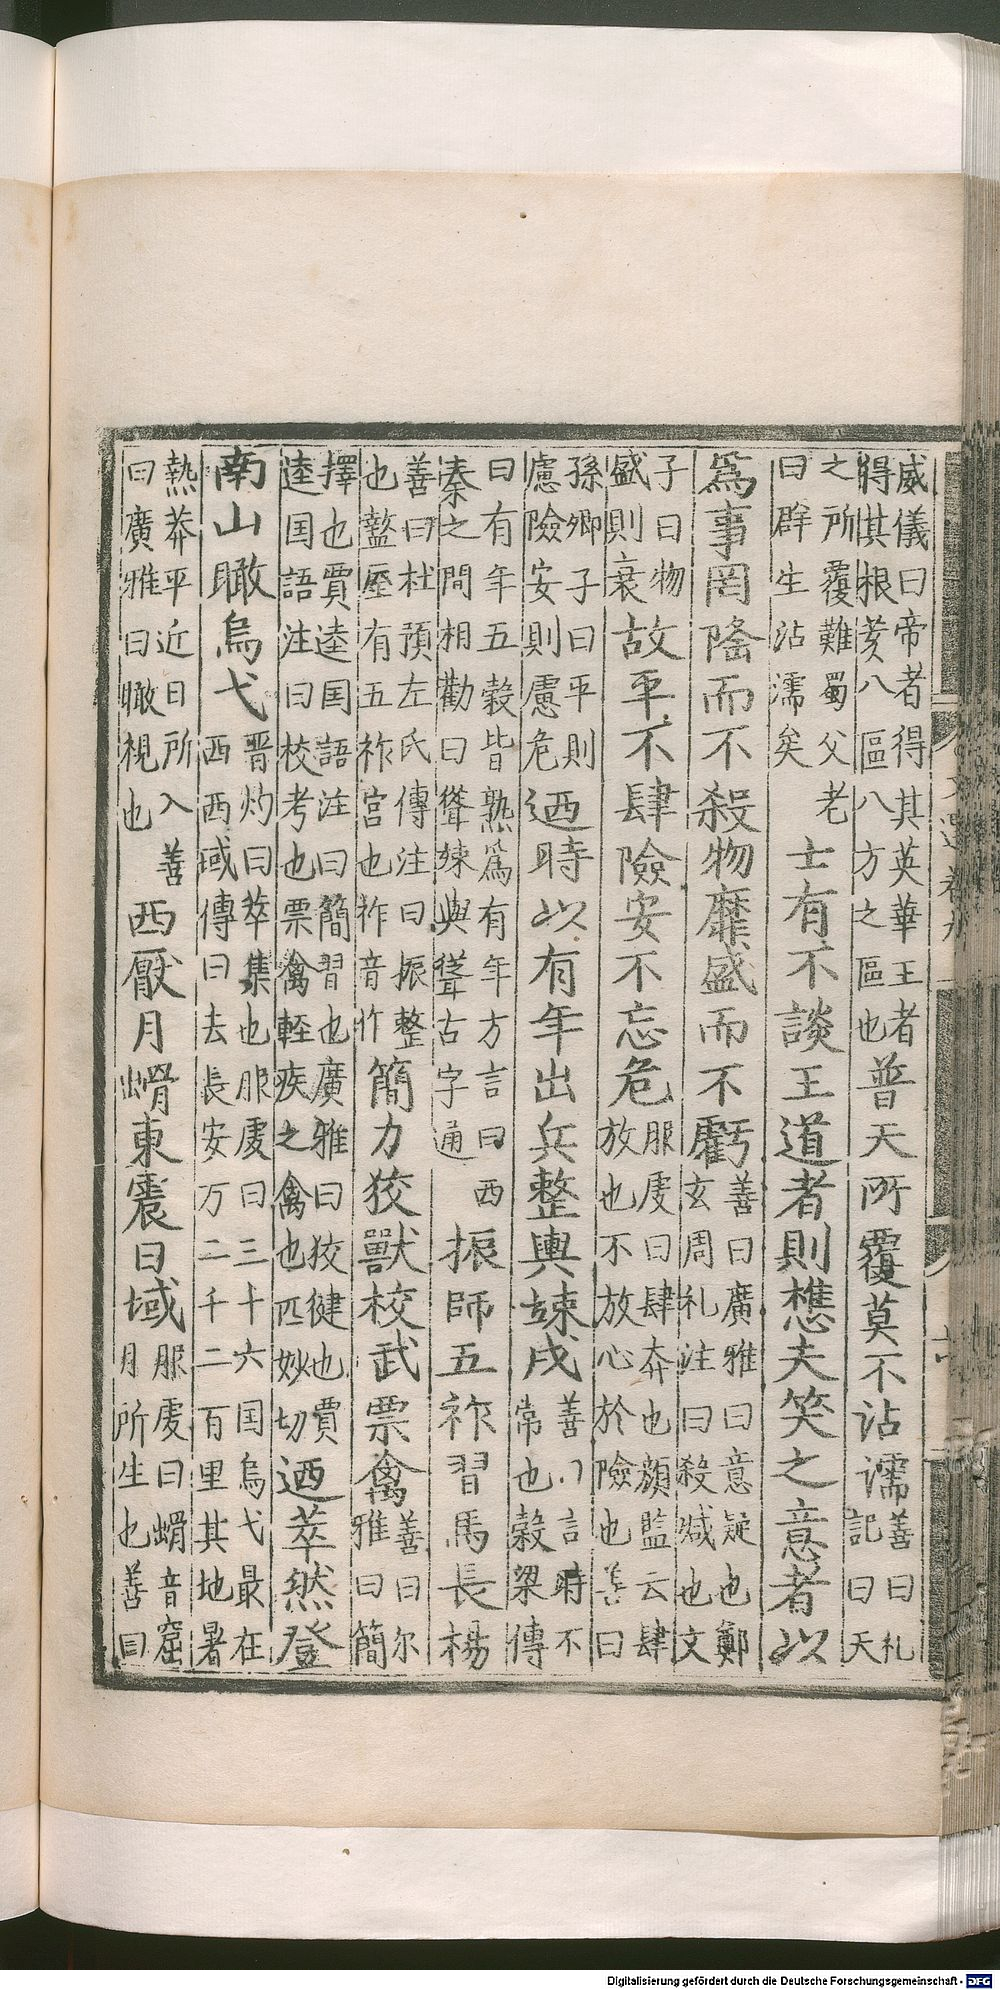 威儀曰帝者得其英華王者得其根荄八區八方之區也普天所覆莫不沾濡善曰札記曰天
之所覆難蜀父老曰群生沾濡矣士有不談王道者則樵夫笑之意者以
爲事罔隆而不殺物靡盛而不虧善曰廣雅曰意疑也鄭玄周礼注曰殺减也文
子曰物盛則衰故平不肆險安不忘危服虔曰肆弃也顔監云肆放也不放心於險也善曰
孫卿子曰平則慮險安則慮危迺時以有年出兵整輿竦戎善曰言時不常也穀梁傳
曰有年五穀皆熟爲有年方言曰西秦之間相勸曰聳竦與聳古字通振師五祚習馬長楊
善曰杜預左氏傳注曰振整也盩厔有五祚宮也祚音作簡力狡獸校武票禽善曰尔雅曰簡
擇也賈逵国語注曰簡習也廣雅曰狡健也賈逵国語注曰校考也票禽輕疾之禽也匹妙切迺萃然登
南山瞰烏弋晋灼曰萃集也服虔曰三十六国烏弋最在西西域傳曰去長安万二千二百里其地暑
熱莽平近日所入善曰廣雅曰瞰視也西厭月𡿖東震日域服虔曰𡿖音窟月所生也善曰
Digitalisierung gefördert durch die Deutsche Forschungsgemeinschaft - DFG